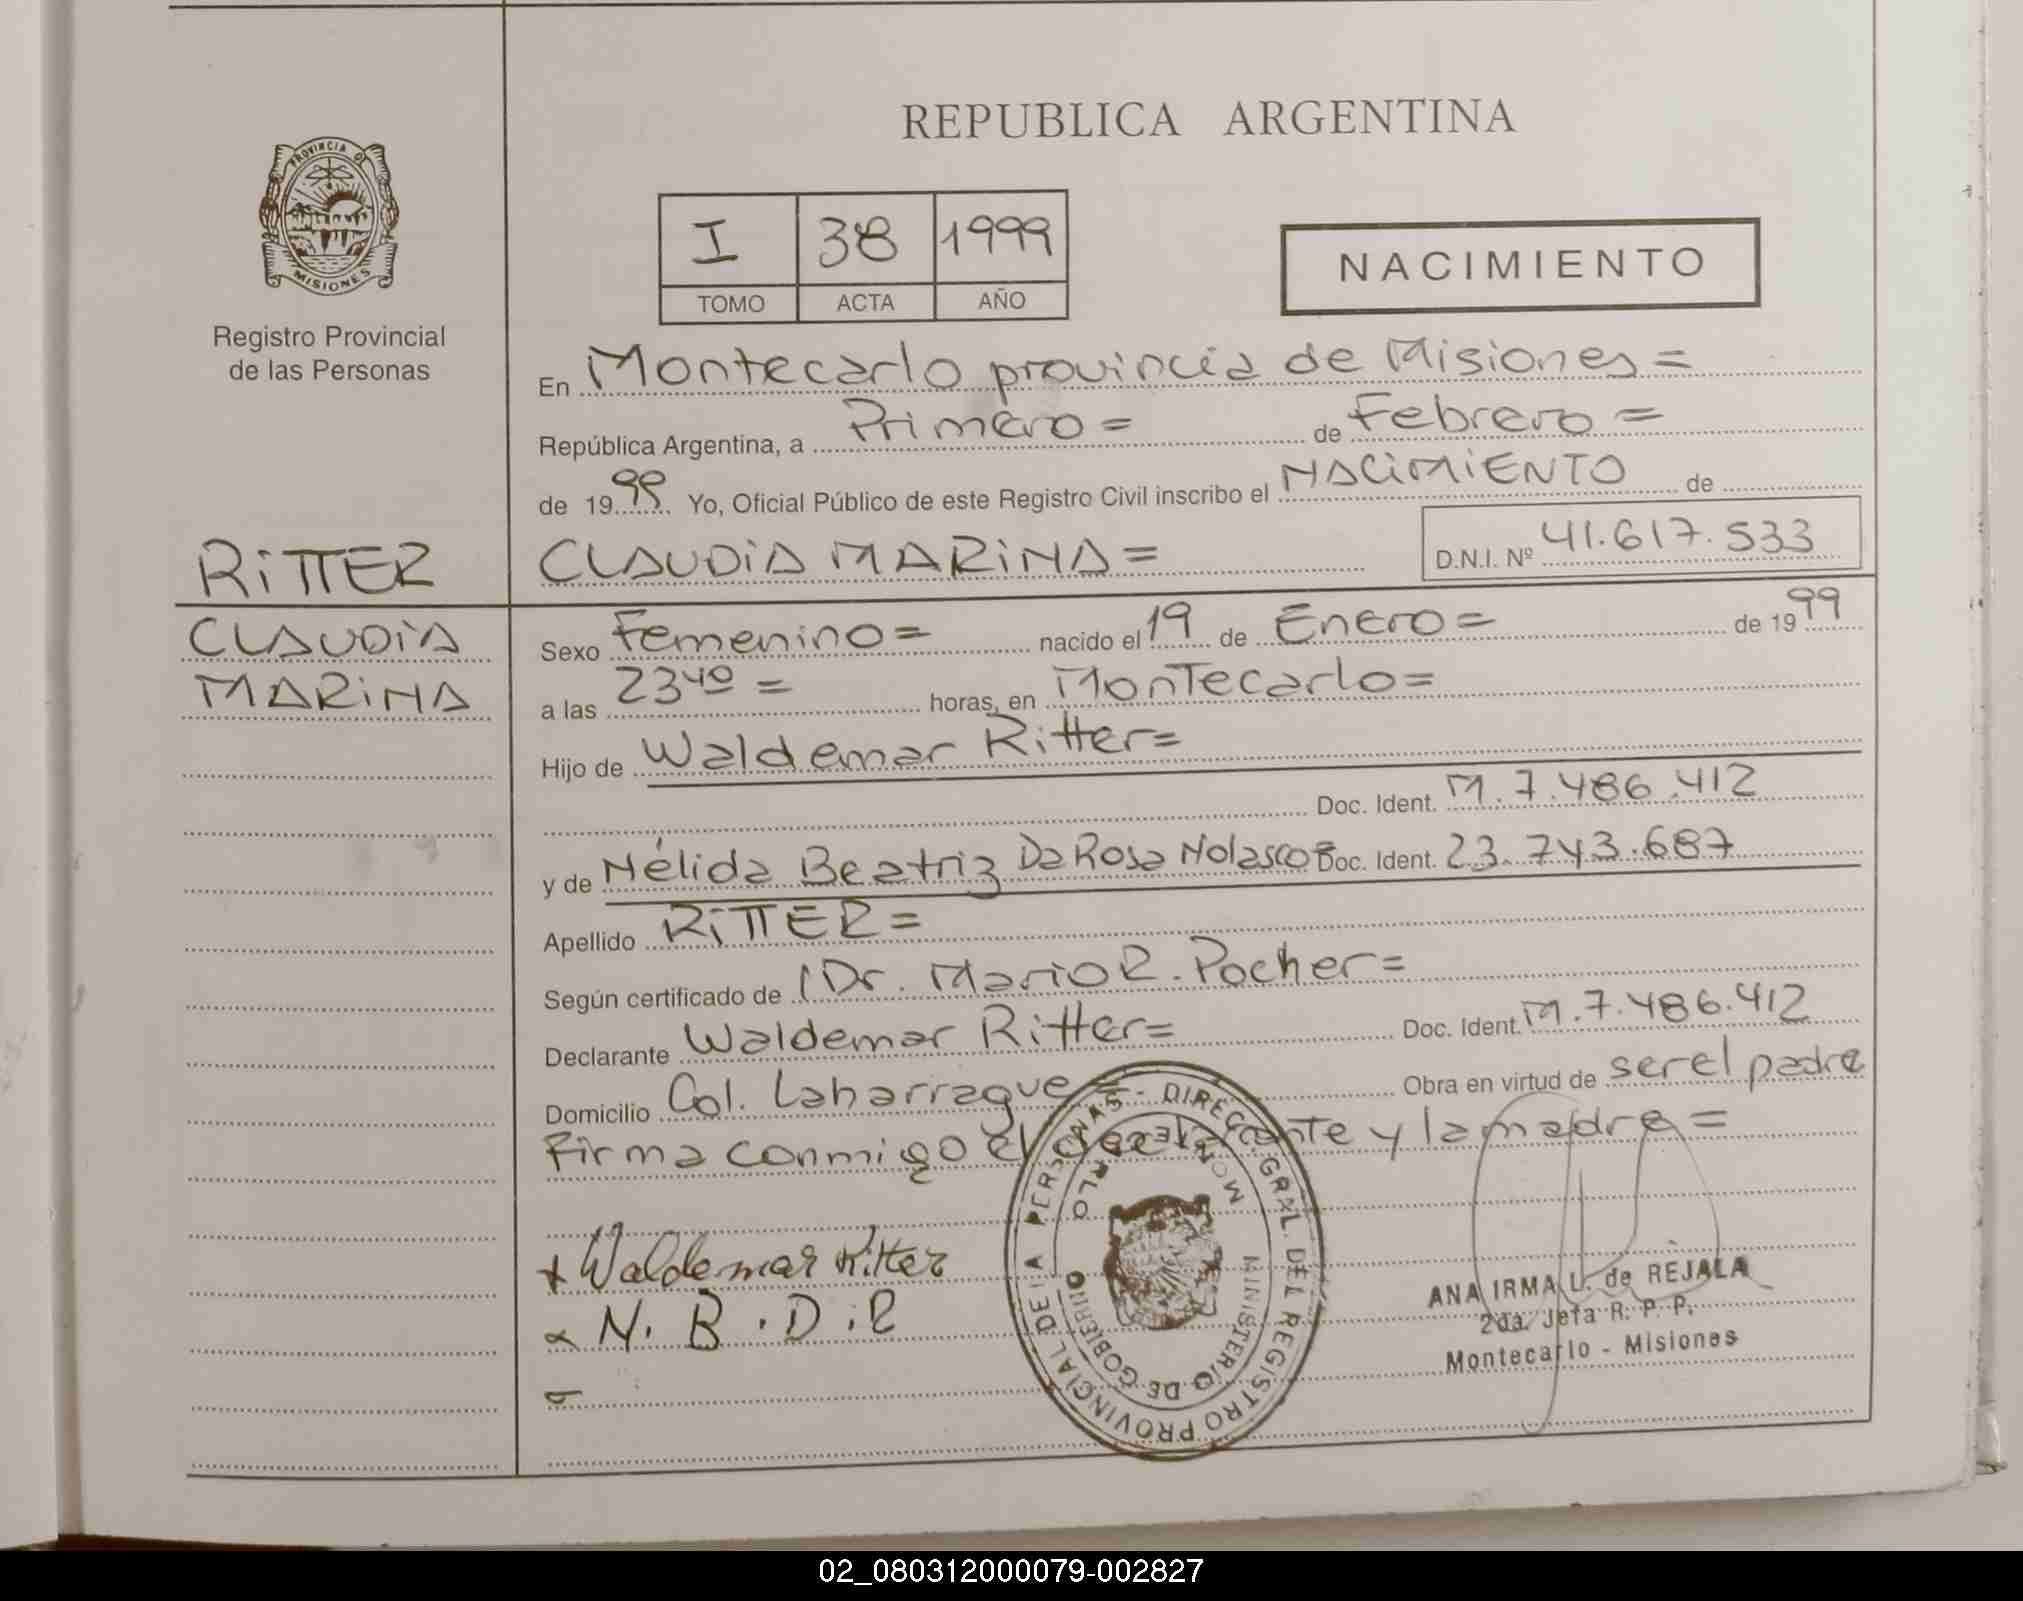 REPUBLICA ARGENTINA
PROVINCIA DE
MISIONES
Registro Provincial
de las Personas
I 38 1999
TOMO ACTA AÑO
NACIMIENTO
En Montecarlo provincia de Misiones =
República Argentina, a Primero = de Febrero =
de 1999 Yo, Oficial Público de este Registro Civil inscribo el NACIMIENTO de
RITTER
CLAUDIA
MARINA
CLAUDIA MARINA = D.N.I. Nº 41.617.533
Sexo Femenino = nacido el 19 de Enero = de 1999
a las 23 40 = horas, en Montecarlo =
Hijo de Waldemar Ritter =
Doc. Ident. M.7.486.412
y de Nélida Beatriz Da Rosa Nolasco = Doc. Ident. 23.743.687
Apellido RITTER =
Según certificado de Dr. Mario R. Pocher =
Declarante Waldemar Ritter = Doc. Ident. M.7.486.412
Domicilio Col. Laharrague = Obra en virtud de ser el padre
Firma conmigo el declarante y la madre =
+ Waldemar Ritter
N. B. D. R
DIREC. GRAL. DEL REGISTRO PROVINCIAL DE LA PERSONAS -
MINISTERIO DE GOBIERNO
MONTECARLO
ANA IRMA L. de REJALA
2da. Jefa R. P. P.
Montecarlo - Misiones
02_080312000079-002827